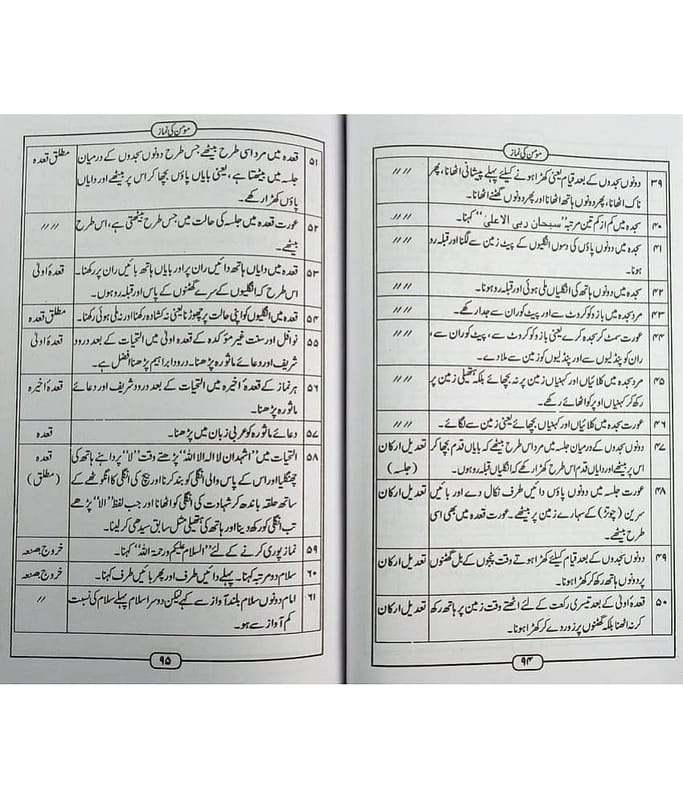 مومن کی نماز
۳۹ دونوں سجدوں کے بعد قیام یعنی کھڑا ہونے کیلئے پہلے پیشانی اٹھانا، پھر 〃 〃
ناک اٹھانا، پھر دونوں ہاتھ اٹھانا اور پھر دونوں گھٹنے اٹھانا۔
۴۰ سجدہ میں کم از کم تین مرتبہ "سبحان ربی الاعلیٰ" کہنا۔ 〃 〃
۴۱ سجدہ میں دونوں پاؤں کی دسوں انگلیوں کے پیٹ زمین سے لگنا اور قبلہ رو 〃 〃
ہونا۔
۴۲ سجدہ میں دونوں ہاتھ کی انگلیاں ملی ہوئی اور قبلہ رو ہونا۔ 〃 〃
۴۳ مرد سجدہ میں بازو کو کروٹ سے اور پیٹ کو ران سے جدا رکھے۔ 〃 〃
۴۴ عورت سمٹ کر سجدہ کرے یعنی بازو کو کروٹ سے، پیٹ کو ران سے، 〃 〃
ران کو پنڈلیوں سے اور پنڈلیوں کو زمین سے ملا دے۔
۴۵ مرد سجدہ میں کلائیاں اور کہنیاں زمین پر نہ بچھائے بلکہ ہتھیلی زمین پر 〃 〃
رکھ کر کہنیاں اوپر کو اٹھائے رکھے۔
۴۶ عورت سجدہ میں کلائیاں اور کہنیاں بچھائے یعنی زمین سے لگائے۔ 〃 〃
۴۷ دونوں سجدوں کے درمیان جلسہ میں مرد اس طرح بیٹھے کہ بایاں قدم بچھا کر تعدیل ارکان
اس پر بیٹھے اور دایاں قدم اس طرح کھڑا رکھے کہ انگلیاں قبلہ رو ہوں۔ (جلسہ)
۴۸ عورت جلسہ میں دونوں پاؤں دائیں طرف نکال دے اور بائیں تعدیل ارکان
سرین (چوتڑ) کے سہارے زمین پر بیٹھے۔ عورت قعدہ میں بھی اسی
طرح بیٹھے۔
۴۹ دونوں سجدوں کے بعد قیام کیلئے کھڑا ہوتے وقت پنجوں کے بل گھٹنوں تعدیل ارکان
پر دونوں ہاتھ رکھ کر کھڑا ہونا۔
۵۰ قعدۂ اولیٰ کے بعد تیسری رکعت کے لئے اٹھتے وقت زمین پر ہاتھ رکھ تعدیل ارکان
کر نہ اٹھنا بلکہ گھٹنوں پر زور دے کر کھڑا ہونا۔
۹۴
مومن کی نماز
۵۱ قعدہ میں مرد اسی طرح بیٹھے جس طرح دونوں سجدوں کے درمیان مطلق قعدہ
جلسہ میں بیٹھتا ہے، یعنی بایاں پاؤں بچھا کر اس پر بیٹھے اور دایاں
پاؤں کھڑا رکھے۔
۵۲ عورت قعدہ میں جلسہ کی حالت میں جس طرح بیٹھتی ہے، اس طرح 〃 〃
بیٹھے۔
۵۳ قعدہ میں دایاں ہاتھ دائیں ران پر اور بایاں ہاتھ بائیں ران پر رکھنا۔ قعدۂ اولیٰ
اس طرح کہ انگلیوں کے سرے گھٹنوں کے پاس اور قبلہ رو ہوں۔
۵۴ قعدہ میں انگلیوں کو اپنی حالت پر چھوڑنا یعنی نہ کشادہ رکھنا اور نہ ملی ہوئی رکھنا۔ مطلق قعدہ
۵۵ نوافل اور سنت غیر مؤکدہ کے قعدہ اولیٰ میں التحیات کے بعد درود قعدۂ اولیٰ
شریف اور دعائے ماثورہ پڑھنا۔ درود ابراہیم پڑھنا افضل ہے۔
۵۶ ہر نماز کے قعدۂ اخیرہ میں التحیات کے بعد درود شریف اور دعائے قعدۂ اخیرہ
ماثورہ پڑھنا۔
۵۷ دعائے ماثورہ کو عربی زبان میں پڑھنا۔ قعدہ
۵۸ التحیات میں "اشہدان لا الہ الا اللہ" پڑھتے وقت "لا" پر داہنے ہاتھ کی قعدہ
چھنگلیا اور اس کے پاس والی انگلی کو بند کرنا اور بیچ کی انگلی کا انگوٹھے کے (مطلق)
ساتھ حلقہ باندھ کر شہادت کی انگلی کو اٹھانا اور جب لفظ "الا" پڑھے
تب انگلی کو رکھ دینا اور ہاتھ کی ہتھیلی مثل سابق سیدھی کر لینا۔
۵۹ نماز پوری کرنے کے لئے "السلام علیکم ورحمۃ اللہ" کہنا۔ خروج بصنعہ
۶۰ سلام دو مرتبہ کہنا۔ پہلے دائیں طرف اور پھر بائیں طرف کہنا۔ خروج بصنعہ
۶۱ امام دونوں سلام بلند آواز سے کہے لیکن دوسرا سلام پہلے سلام کی نسبت 〃
کم آواز سے ہو۔
۹۵